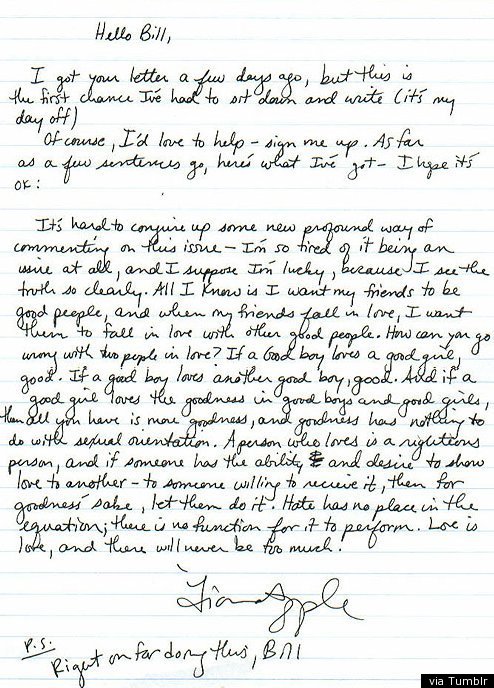 Hello Bill,
I got your letter a few days ago, but this is
the first chance I've had to sit down and write (it's my
day off)
Of course, I'd love to help - sign me up. As far
as a few sentences go, here's what I've got - I hope it's
OK:
It's hard to conjure up some new profound way of
commenting on this issue - I'm so tired of it being an
issue at all, and I suppose I'm lucky, because I see the
truth so clearly. All I know is I want my friends to be
good people, and when my friends fall in love, I want
them to fall in love with other good people. How can you go
wrong with two people in love? If a good boy loves a good girl,
good. If a good boy loves another good boy, good. And if a
good girl loves the goodness in good boys and good girls,
then all you have is more goodness, and goodness has nothing to
do with sexual orientation. A person who loves is a righteous
person, and if someone has the ability and desire to show
love to another - to someone willing to receive it, then for
goodness' sake, let them do it. Hate has no place in the
equation; there is no function for it to perform. Love is
love, and there will never be too much.
Fiona Apple
P.S.
Right on for doing this, Bill
via Tumblr